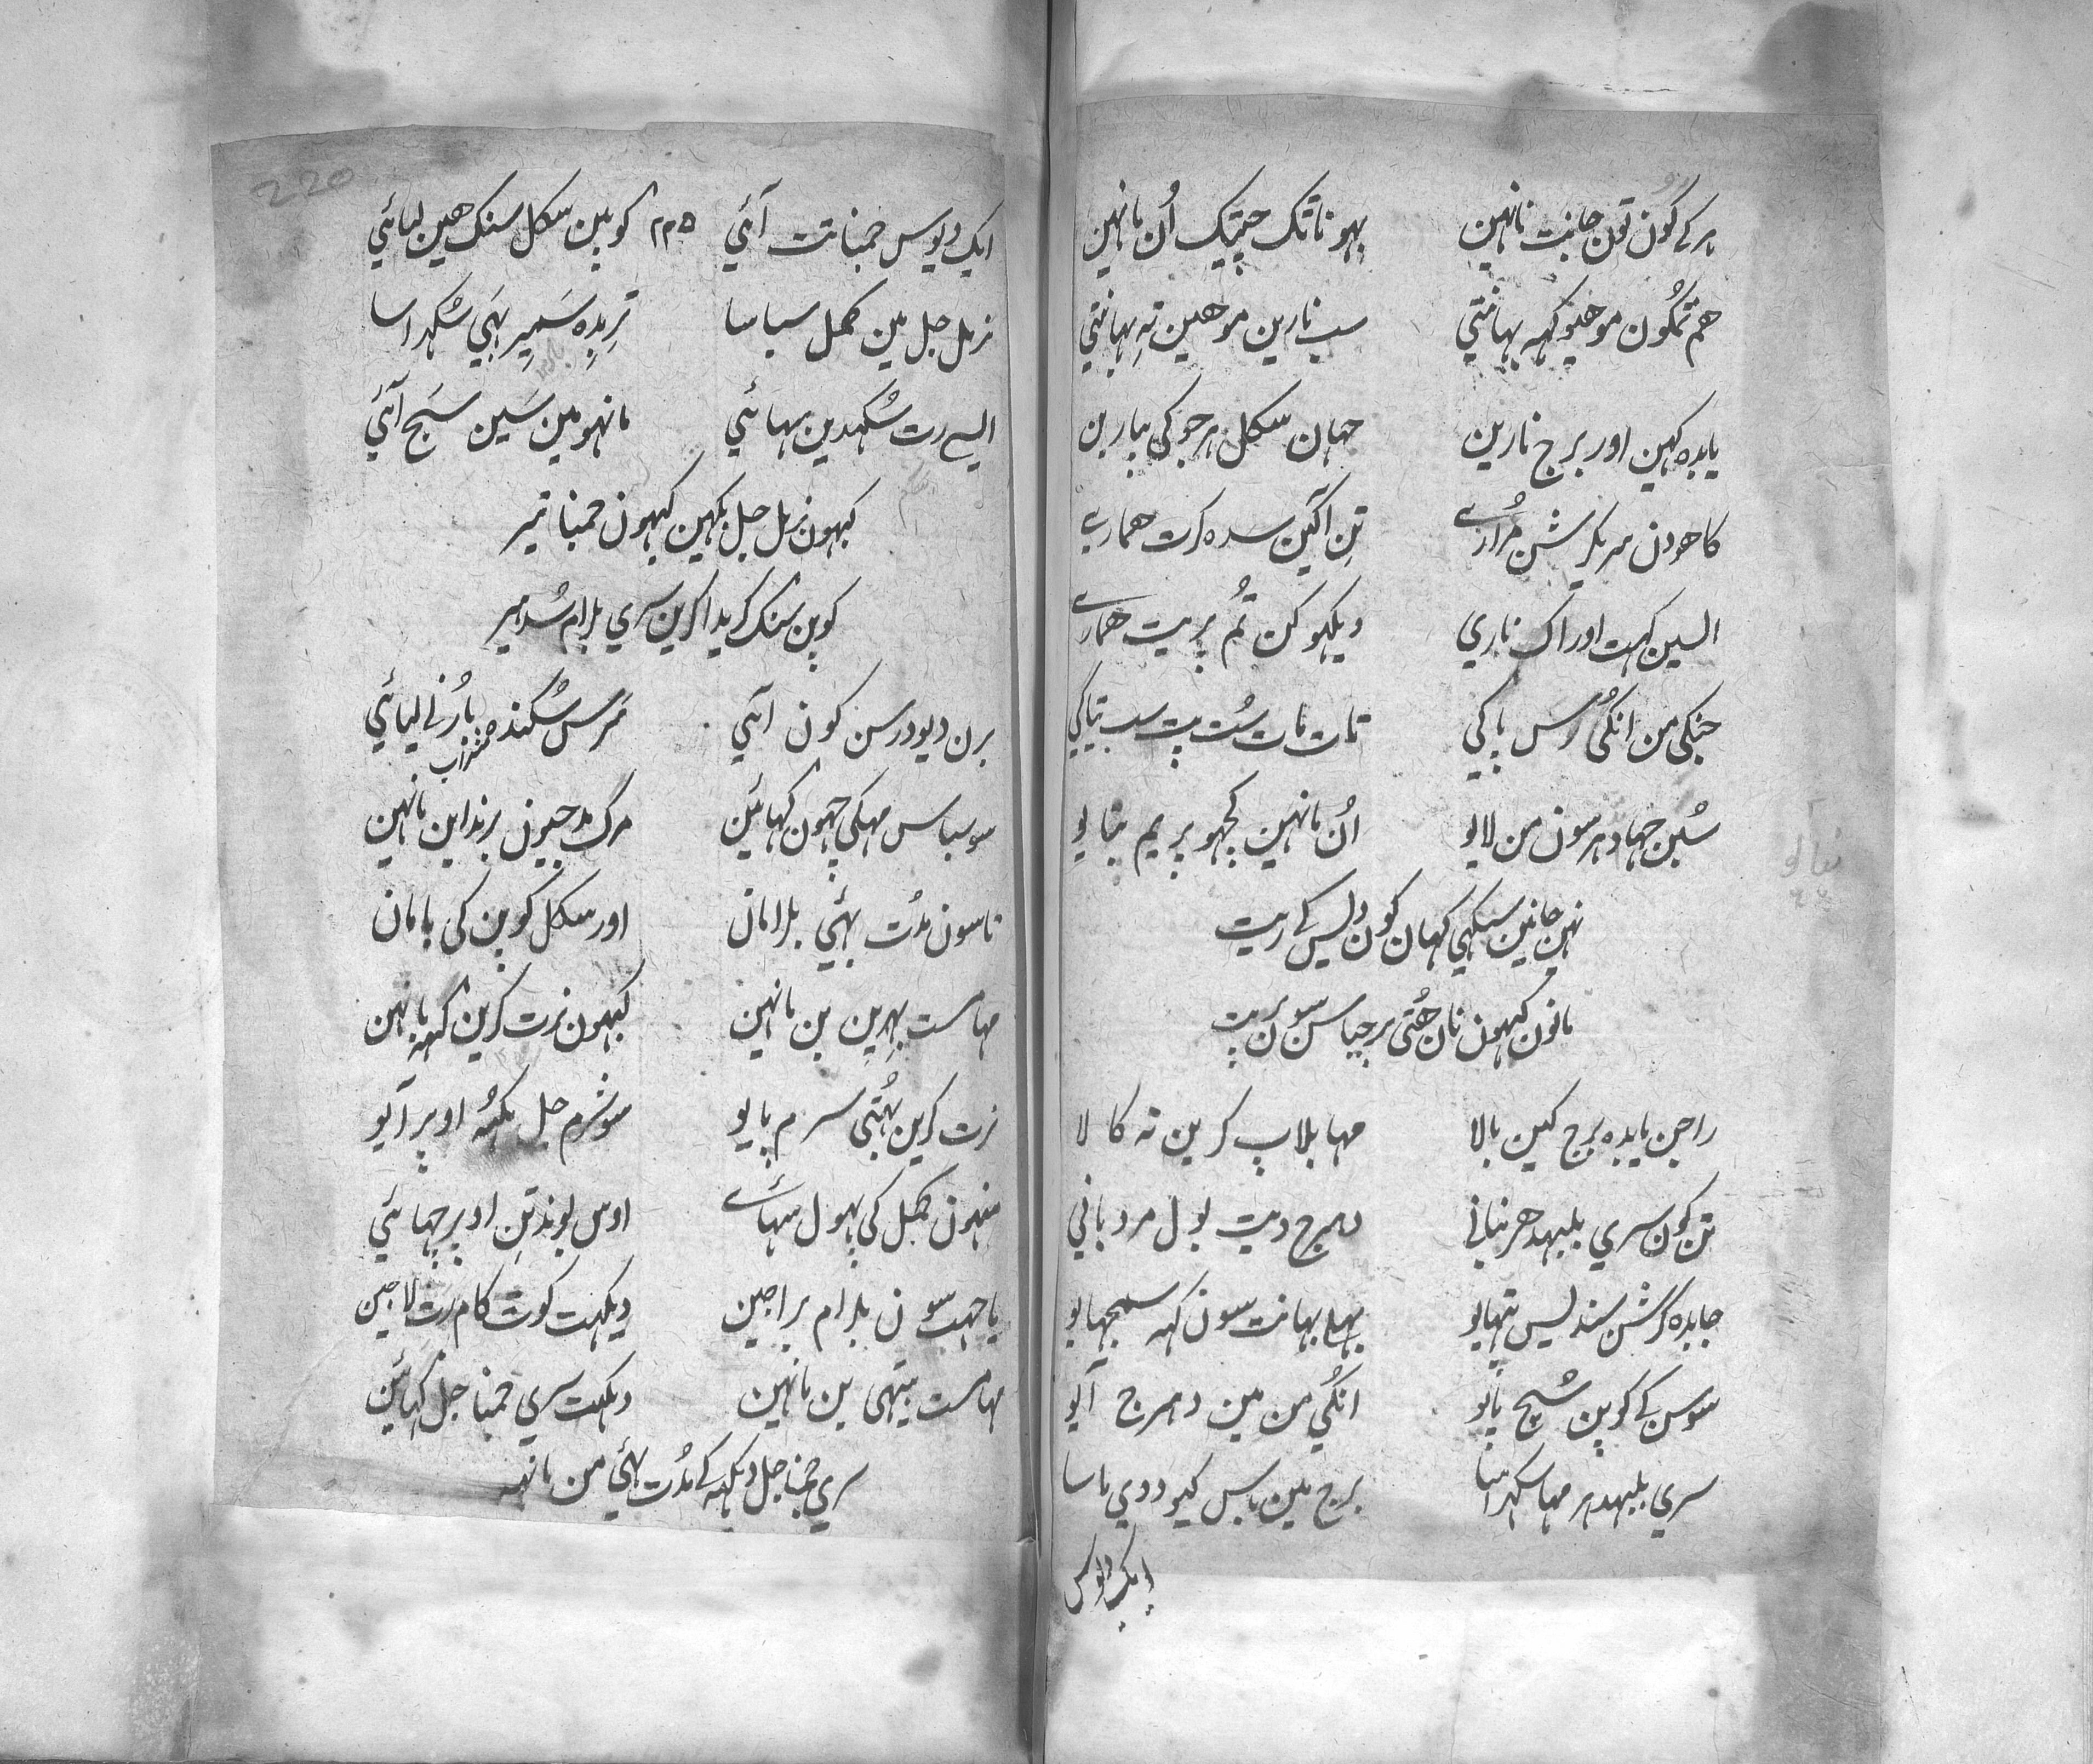 ہر کے کون تون جانت نانہین بہو ناتک چیتک اُن مانہین
هم تمکُون موهیو کہہ بہانتی سب نارین موهین تہِ بہانتی
یابدہ کہین اور برج نارین جہان سکل ہر جو کی پیارین
کاهو دن سریکرشن مُرارے تِن آگین سدہ کرت هماری
السین کہت اور اک ناري دیکہو کن تُم پریت همارے
جنکی من انکی رُس پاکي تات مات سُت پت سب تیاکي
سُبن جہاد ہر سون من لایو اُن مانہین کچہو پریم نپایو
نہن جانین سکہي کہان کون دیس کے ریت
مانون کبہون نان هُتی برجباسن سون پریت
راجن یابدہ برج کین بالا مہا بلاپ کرین تہ کالا
تن کون سري بلبہدهر نباني دہیرج دیت بول مرد باني
جابدہ کرشن سندیس پتہایو بہلي بہانت سون کہہ سمجہایو
سو سن کے کوپن سُچ پایو انکُي من مین دہیرج آیو
سري بلبہدہر مہا سکہراسا برج مین باس کیو دوي ماسا
ایک دیوس
220
ایک دیوس جمنا تت آئي ۲۲۵ کوپین سکل سنک هین لیائي
نرمل جل مین کمل سباسا تربدہ سَمیِر بہَي سُکہراسا
ایسے رت سُکہدین سہائي مانہو مین سَین سَج آئي
کبہون نرمل جل بکہین کبہون جمنا تیر
کوپن سنک کریدا کرین سري بلرام سُدہیر
برن دیو درسن کون آئي سَرس سُکندہ بارُنے لیائي
شراب
سو سباس مہکی چہون کہائین مرگ مد جیون برنداین مانہین
تاسون مُدت بہئي بلرامان اور سکل کوپن کی بامان
مہا مست بہرین بن مانہین کبہون نرت کرین کہہ بانہین
نرت کرین بہُتی سرم پایو سو شرم جل مکہُہ اوپر آیو
منہون کمل کی پہول سہائے اوس بوند تن اوپر چہائي
یا جہب سون بلرام براجین دیکہت کوٹ کام رت لاجین
مہا مست بیتہی بن مانہین دیکہت سري جمنا جل کہائین
سري جمنا جل دیکہہ کے مُدت بہئي من مانہہ